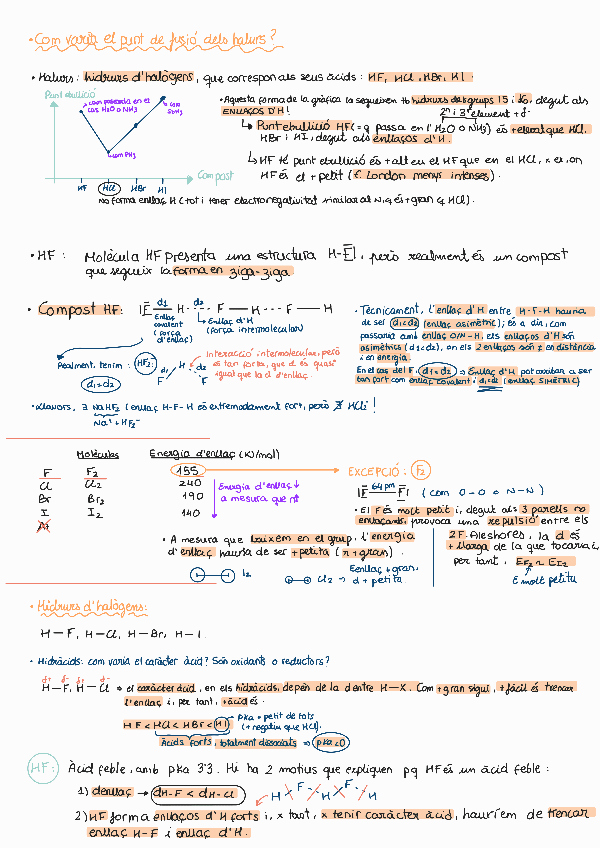 • Com varia el punt de fusió dels halurs?
• Halurs: hidrurs d'halògens, que correspon als seus àcids: HF, HCl, HBr, HI.
Punt ebullició
com passaria en el cas H2O o NH3
com PH3
com SbH3
HF HCl HBr HI
Compost
No forma enllaç H (tot i tener electronegativitat similar al N, q és + gran q HCl).
• Aquesta forma de la gràfica la segueixen tb hidrurs dels grups 15 i 16, degut als
ENLLAÇOS D'H!
2n i 3r element + f.
↳ Punt ebullició HF (= q passa en l'H2O o NH3) és + elevat que HCl,
HBr i HI, degut als enllaços d'H.
↳ HF té punt ebullició és + alt en el HF que en el HCl, x en
HF és el + petit (F. London menys intenses).
• HF: Molècula HF presenta una estructura H-F, però realment és un compost
que segueix la forma en ziga-ziga
• Compost HF: F — H --- F — H --- F — H
d1 d2
Enllaç covalent (força d'enllaç)
↳ Enllaç d'H (força intermolecular)
Realment, tenim: HF2-
d1=d2
F d1 H d2 F
Interacció intermolecular, però
és tan forta, que d és quasi
igual que la d d'enllaç.
• Tècnicament, l'enllaç d'H entre H-F-H hauria
de ser d1≠d2 (enllaç asimètric); és a dir, com
passaria amb enllaç O/N-H, els enllaços d'H són
asimètrics (d1≠d2), on els 2 enllaços són ≠ en distància
i en energia.
En el cas del F: d1=d2 ⇒ Enllaç d'H pot arribar a ser
tan fort com enllaç covalent i d1=d2 (enllaç SIMÈTRIC)
• Llavors, ∃ NaHF2 (enllaç H-F-H és extremadament fort, però ∄ HCl2-!
Na+ + HF2-
Molècules Energia d'enllaç (KJ/mol)
F F2 155
Cl Cl2 240
Br Br2 190
I I2 140
At
Energia d'enllaç ↓
a mesura que n↑
EXCEPCIÓ: F2
64 pm
F — F (com O-O o N-N)
• El F és molt petit i, degut als 3 parells no
enllaçants, provoca una repulsió entre els
2F. Aleshores, la d és
+ llarga de la que tocaria i,
per tant, EF2 ~ EI2
F molt petit
• A mesura que baixem en el grup, l'energia
d'enllaç hauria de ser + petita (r + gran).
I2
Cl2 → Eenllaç + gran, d + petita
• Hidrurs d'halògens:
H-F, H-Cl, H-Br, H-I.
• Hidràcids: com varia el caràcter àcid? Són oxidants o reductors?
δ+ δ- δ+ δ-
H-F, H-Cl ⇒ el caràcter àcid, en els hidràcids, depèn de la d entre H-X. Com + gran sigui, + fàcil és trencar
l'enllaç i, per tant, + àcid és.
HF < HCl < HBr < HI
pKa + petit de tots
(+ negatiu que HCl).
Àcids forts, totalment dissociats ⇒ pKa<0
HF: Àcid feble, amb pKa 3'3. Hi ha 2 motius que expliquen pq HF és un àcid feble:
1) denllaç → dH-F < dH-Cl
H F H F H
2) HF forma enllaços d'H forts i, x tant, x tenir caràcter àcid, hauríem de trencar
enllaç H-F i enllaç d'H.